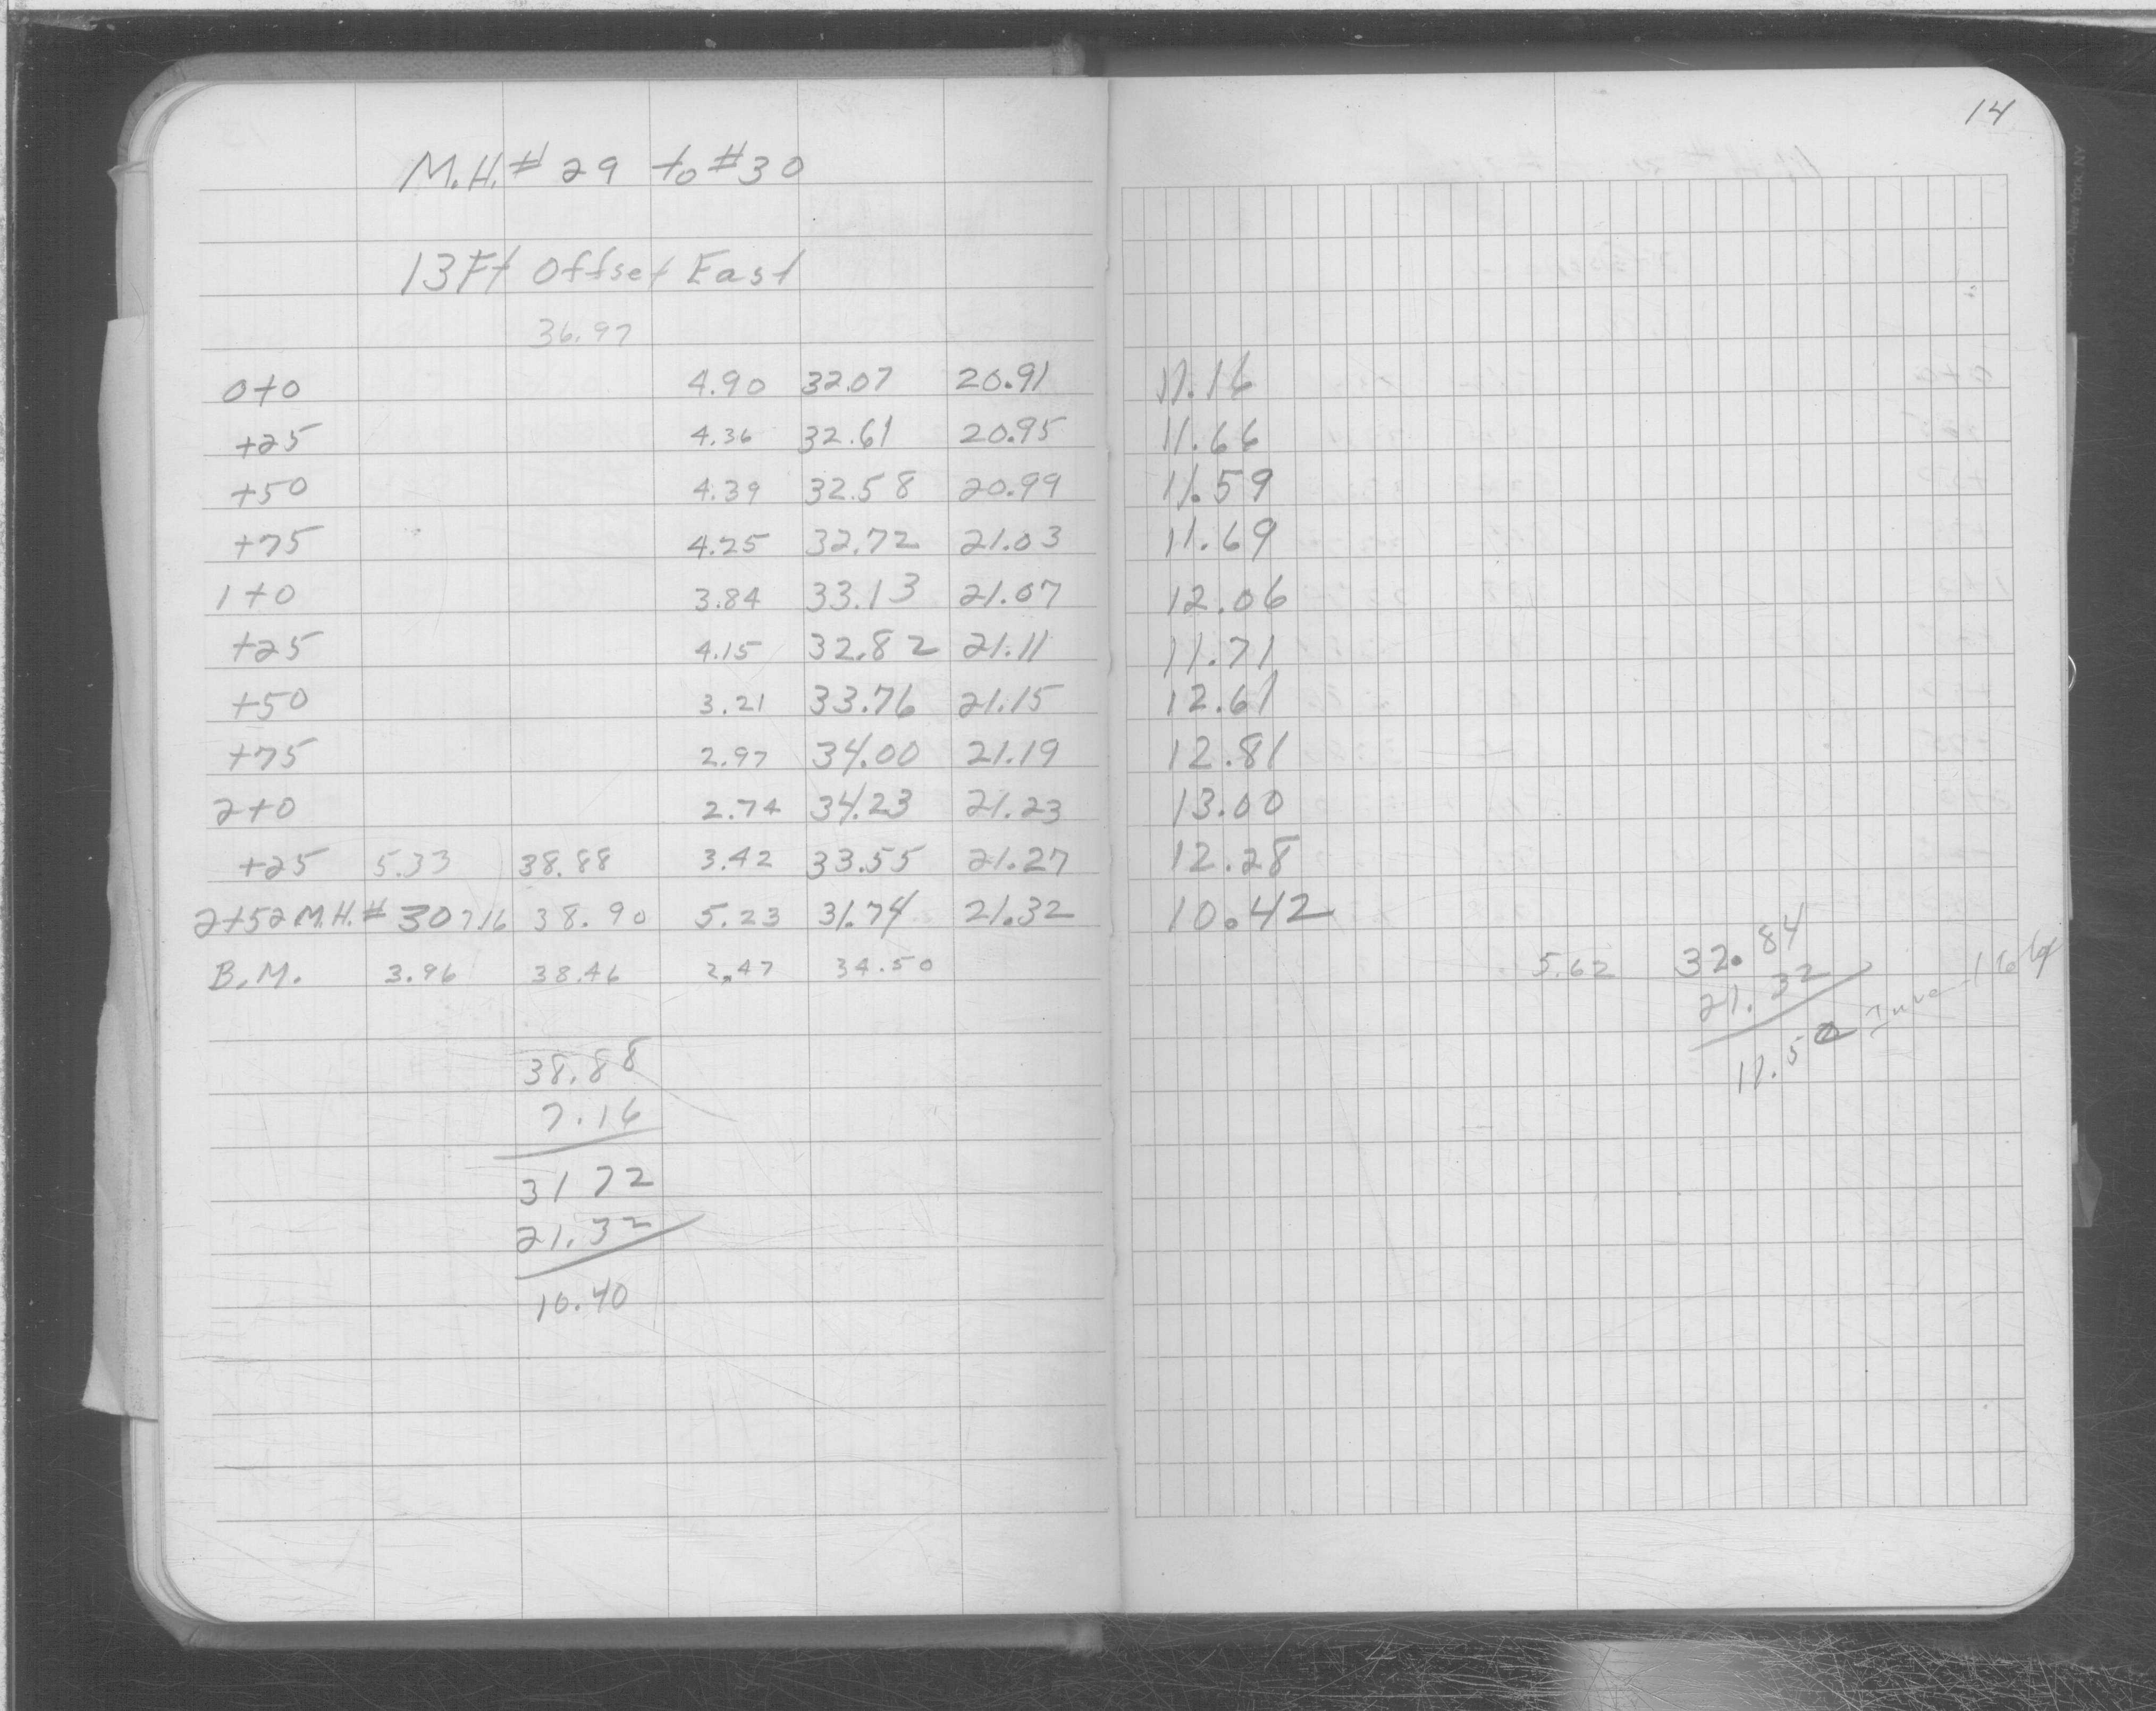 14
M.H. # 29 to #30
13 Ft Offset East
36.97
0+0 4.90 32.07 20.91 11.16
+25 4.36 32.61 20.95 11.66
+50 4.39 32.58 20.99 11.59
+75 4.25 32.72 21.03 11.69
1+0 3.84 33.13 21.07 12.06
+25 4.15 32.82 21.11 11.71
+50 3.21 33.76 21.15 12.61
+75 2.97 34.00 21.19 12.81
2+0 2.74 34.23 21.23 13.00
+25 5.33 38.88 3.42 33.55 21.27 12.28
2+52 M.H. # 30 7.16 38.90 5.23 31.74 21.32 10.42
B.M. 3.96 38.46 2.47 34.50 5.62 32.84
21.32
11.52
38.88
7.16
31 72
21.32
10.40